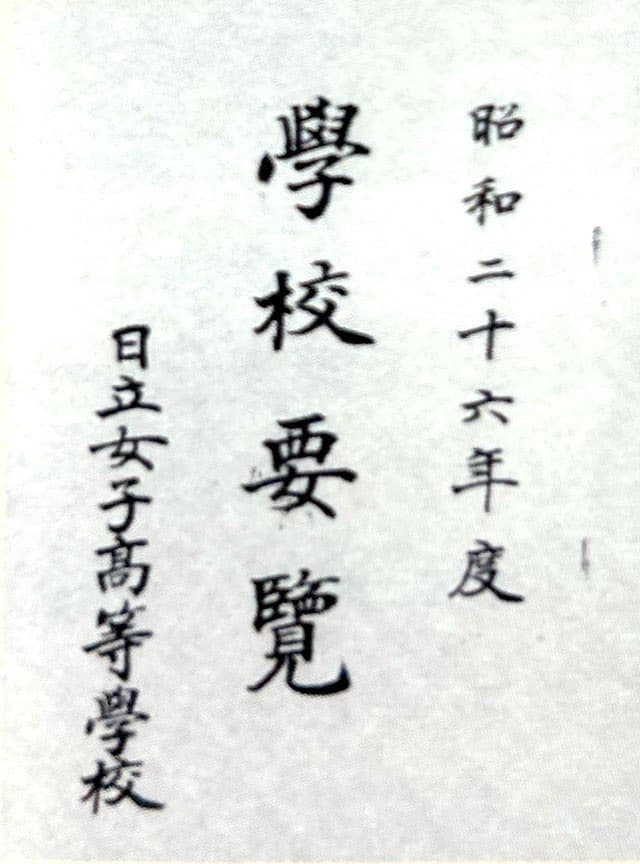 昭和二十六年度
學校要覽
日立女子髙等學校